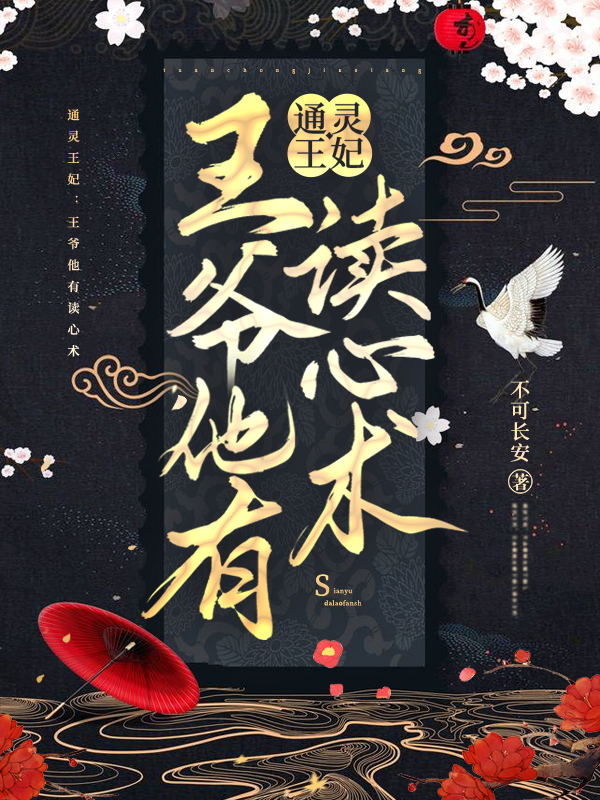 tuanchongjiaxiang
通灵
王妃
王爷他有
读心术
通灵王妃：王爷他有读心术
不可长安
著
Sianyu
dalaofansh